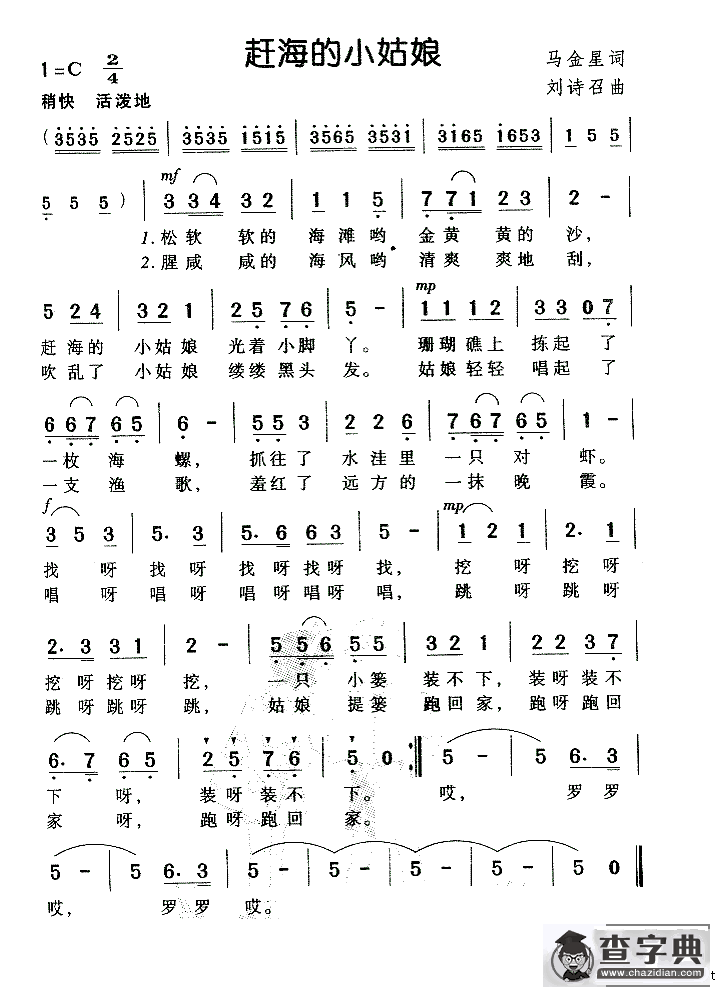 赶海的小姑娘
1=C 2/4
马金星词
刘诗召曲
稍快 活泼地
(3535 2525 | 3535 1515 | 3565 3531 | 3165 1653 | 1 5 5 |
mf
5 5 5) | 3 34 3 2 | 1 1 5 | 7 71 2 3 | 2 - |
1.松软 软的 海滩哟, 金黄 黄的 沙,
2.腥咸 咸的 海风哟, 清爽 爽地 刮,
mp
5 2 4 | 3 2 1 | 2 5 7 6 | 5 - | 1 1 1 2 | 3 3 0 7 |
赶 海的 小姑娘 光着小脚 丫。 珊瑚礁上 拣起 了
吹 乱了 小姑娘 缕缕黑头 发。 姑娘轻轻 唱起 了
6 6 7 6 5 | 6 - | 5 5 3 | 2 2 6 | 7 6 7 6 5 | 1 - |
一枚 海 螺, 抓往了 水洼里 一只 对 虾。
一支 渔 歌, 羞红了 远方的 一抹 晚 霞。
f mp
3 5 3 | 5. 3 | 5. 6 6 3 | 5 - | 1 2 1 | 2. 1 |
找 呀 找 呀 找 呀找呀 找, 挖 呀 挖 呀
唱 呀 唱 呀 唱 呀唱呀 唱, 跳 呀 跳 呀
2. 3 3 1 | 2 - | 5 5 6 5 5 | 3 2 1 | 2 2 3 7 |
挖 呀挖呀 挖, 一只 小篓 装不下, 装呀装不
跳 呀跳呀 跳, 姑娘 提篓 跑回家, 跑呀跑回
6. 7 6 5 | 2 5 7 6 | 5 0 :| 5 - | 5 - | 6. 3 |
下 呀, 装呀装不 下。 哎, 罗 罗
家 呀, 跑呀跑回 家。
5 - | 5 6. 3 | 5 - | 5 - | 5 - | 5 0 ‖
哎, 罗 罗 哎。
查字典
www.chazidian.com
t